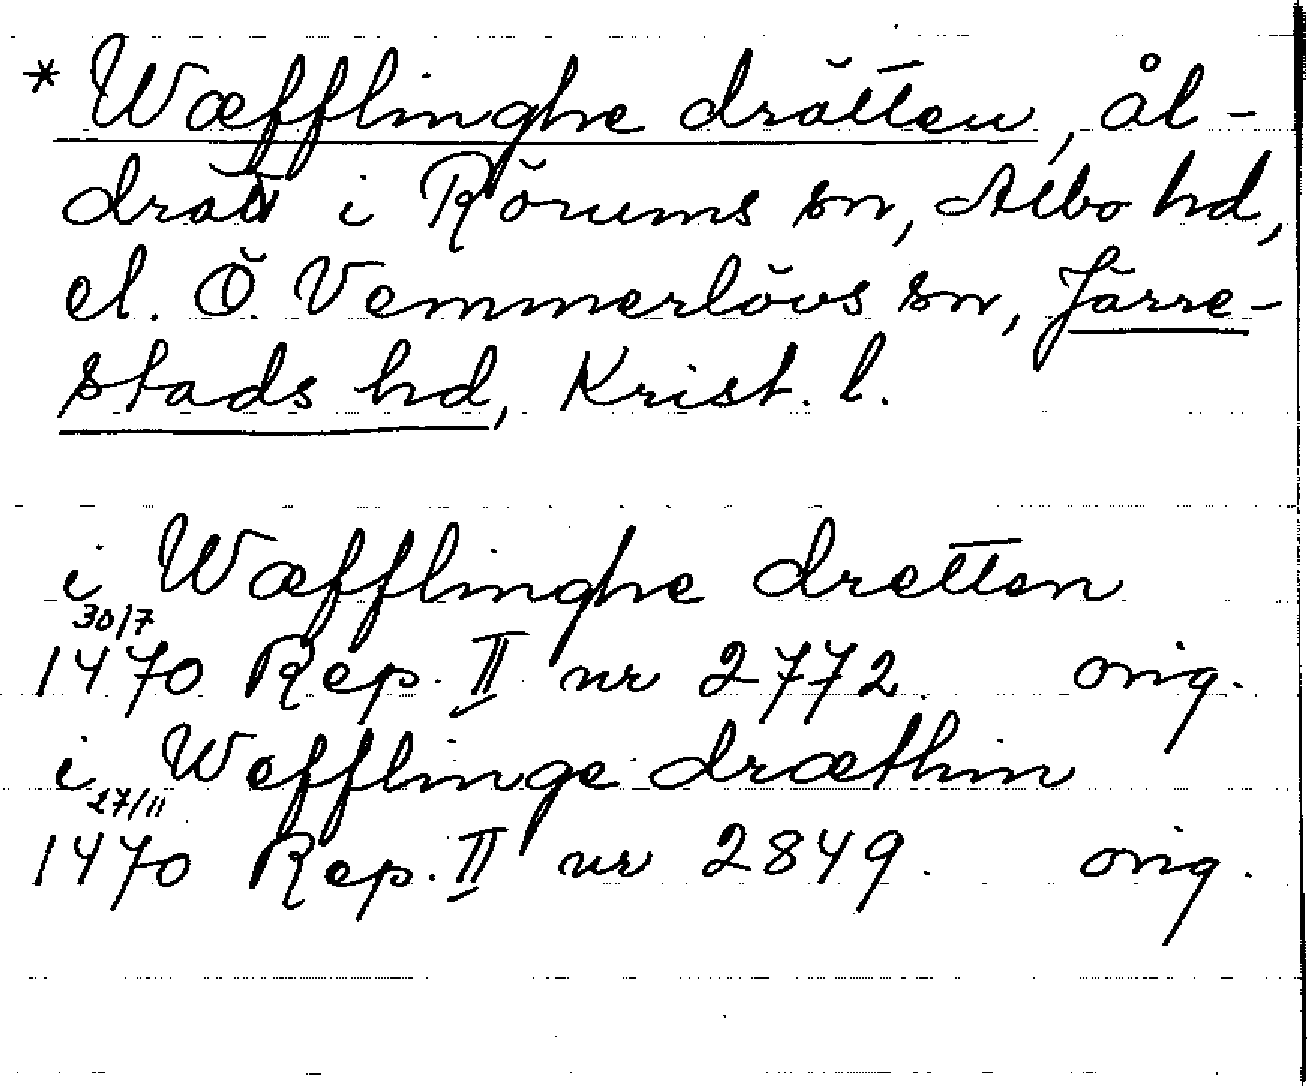 * Wæfflinghe drätten, ål-
drätt i Rörums sn, Albo hd,
el. Ö. Vemmerlövs sn, Järre-
stads hd, Krist. l.
i Wæfflinghe dretten
30/7
1470 Rep. II nr 2772. orig.
i Wefflinge dræthin
27/11
1470 Rep. II nr 2849. orig.